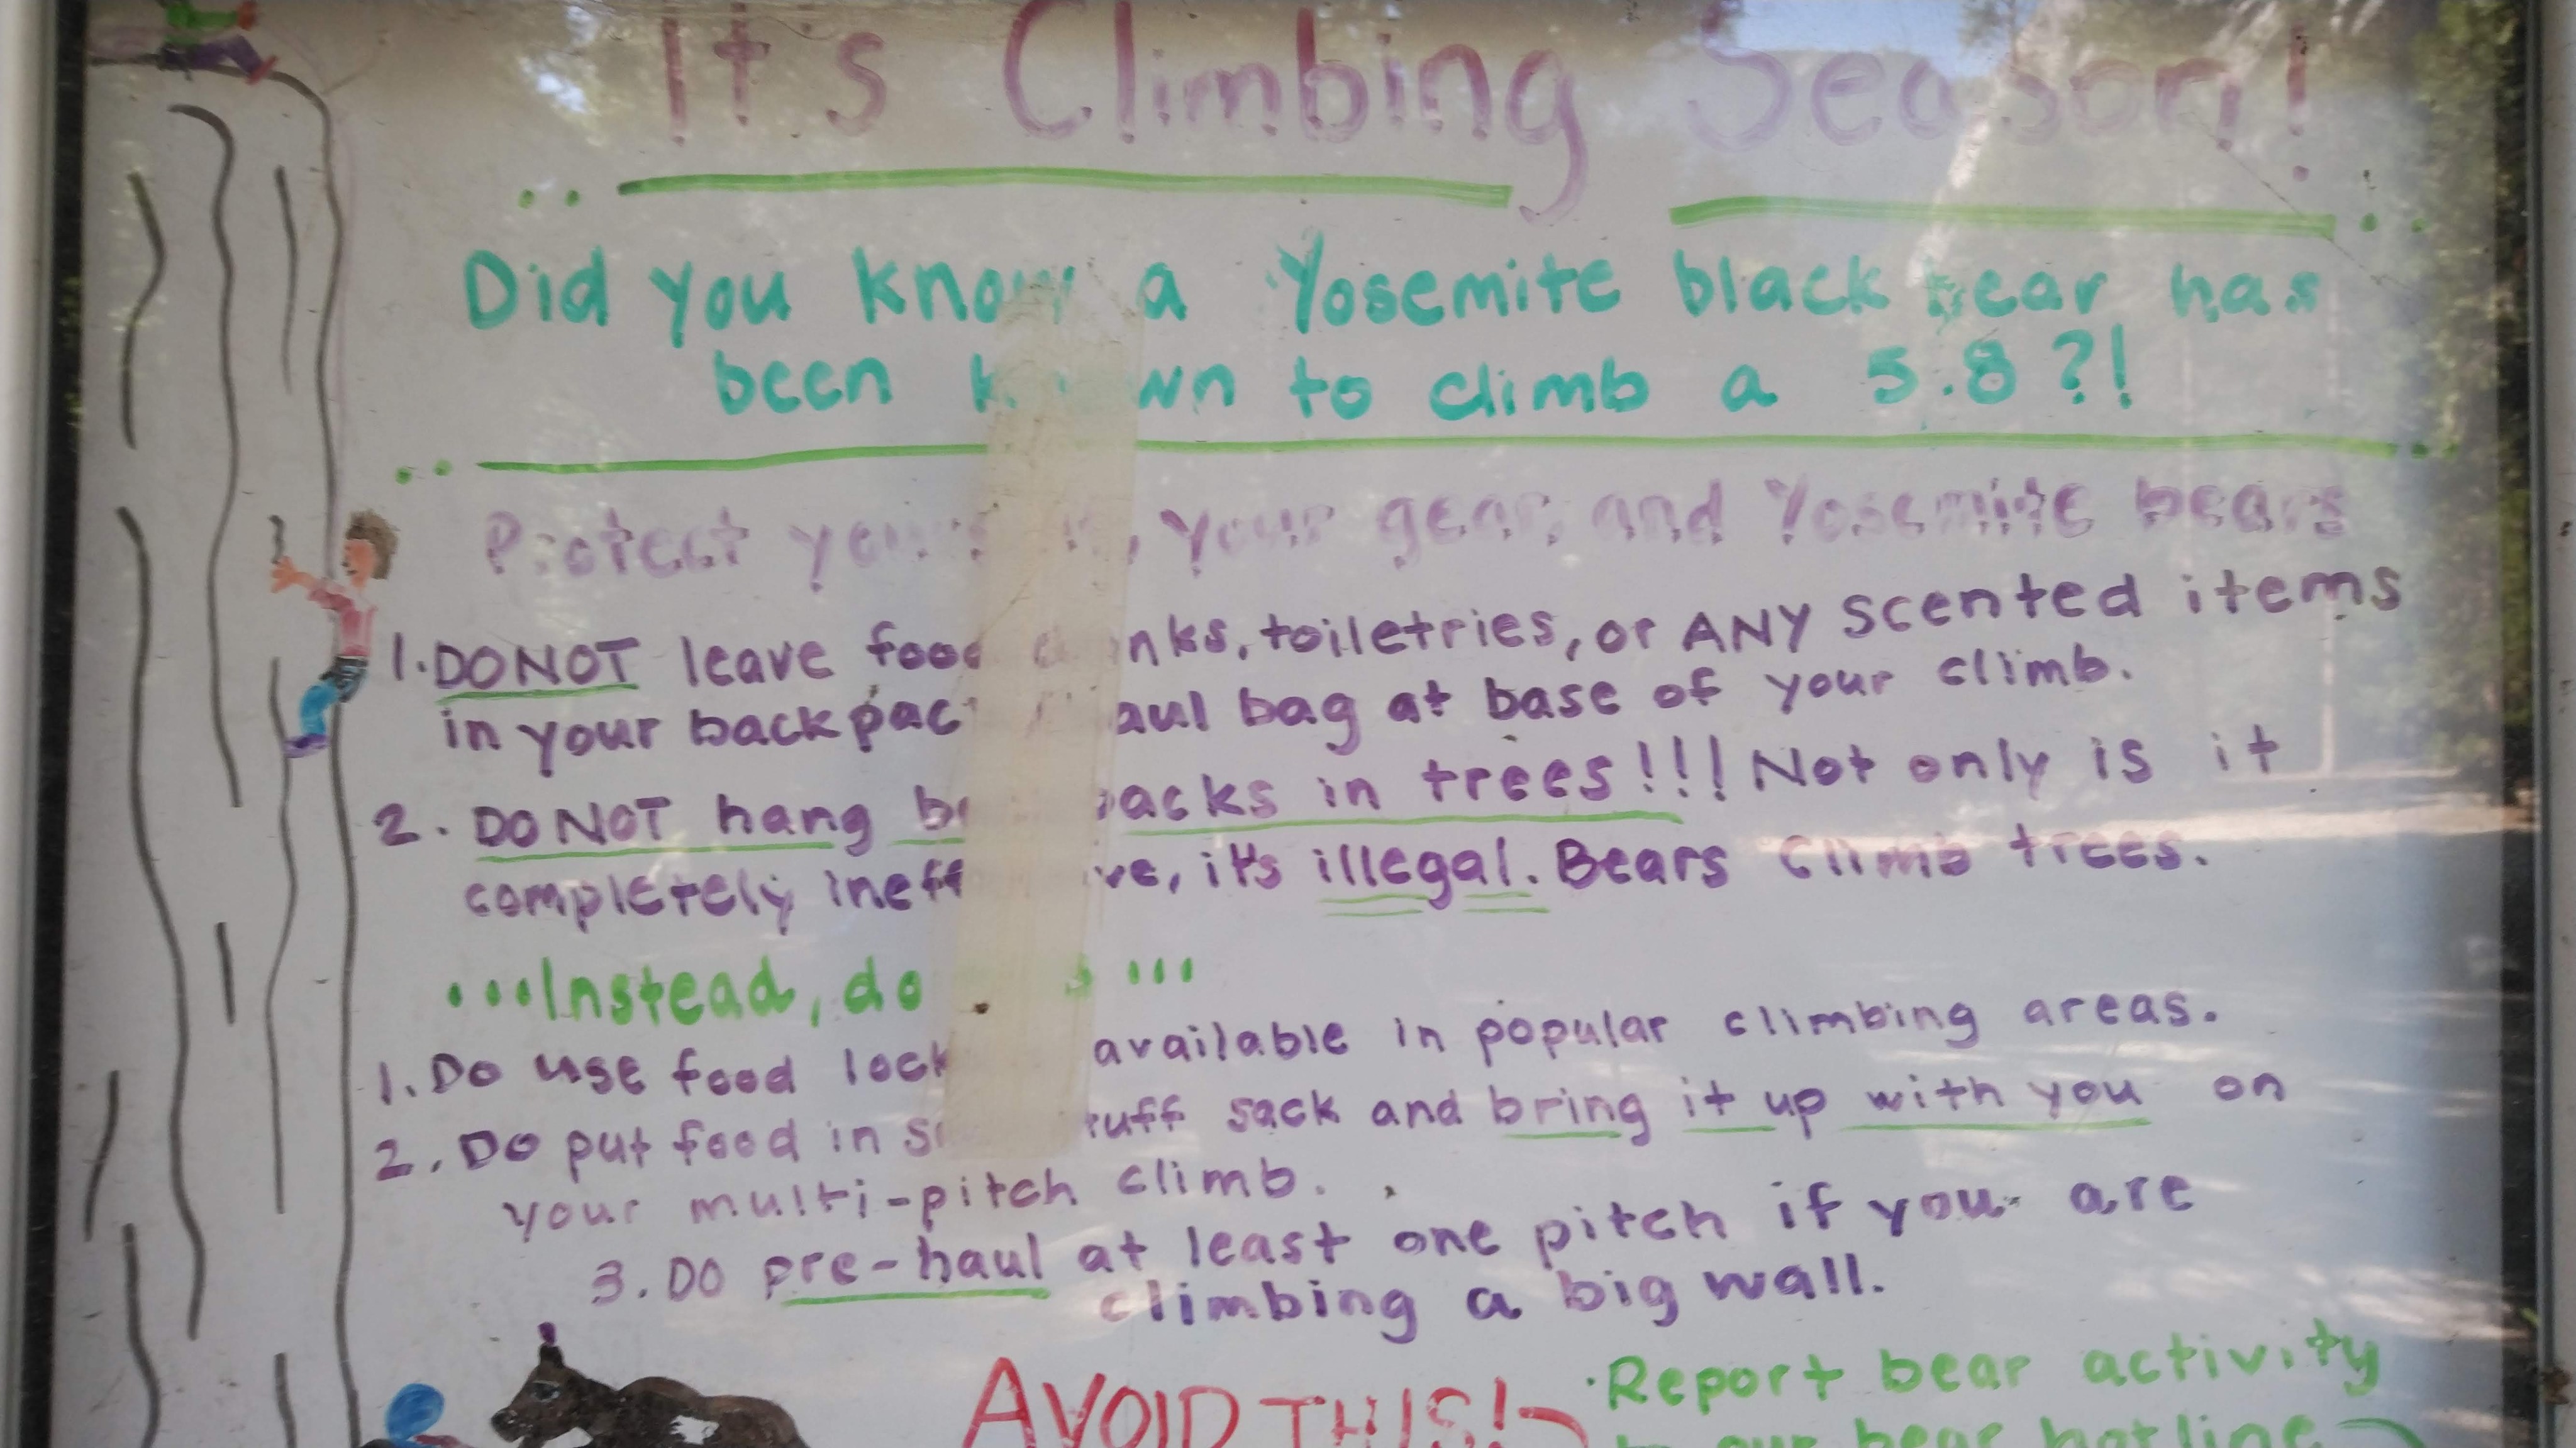 It's Climbing Season!
Did you know a Yosemite black bear has
been known to climb a 5.8?!
Protect your, your gear, and Yosemite bears
1. DO NOT leave food drinks, toiletries, or ANY scented items
in your backpack haul bag at base of your climb.
2. DO NOT hang backpacks in trees!!! Not only is it
completely ineffective, it's illegal. Bears climb trees.
...Instead, do ...
1. Do use food available in popular climbing areas.
2. Do put food in stuff sack and bring it up with you on
your multi-pitch climb.
3. DO pre-haul at least one pitch if you are
climbing a big wall.
AVOID THIS!
Report bear activity
our bear hotline